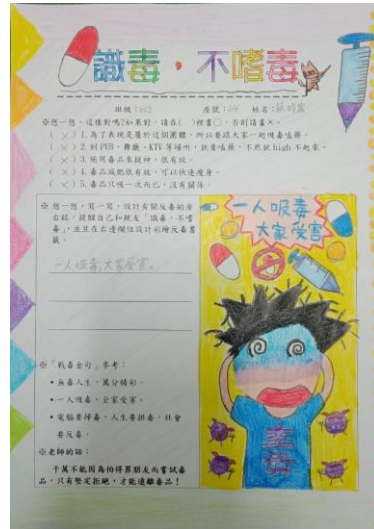 識毒・不嗜毒
班級: 座號: 姓名:
※想一想,這樣對嗎?如果對,請在( )裡畫○,否則請畫×。
(×)1.為了表現是屬於這個團體,所以要跟大家一起吸毒嗑藥。
(×)2.到PUB、舞廳、KTV等場所,就要嗑藥,不然就high不起來。
(×)3.純用毒品來提神,很有效。
(×)4.毒品減肥很有效,可以快速瘦身。
(×)5.毒品只吸一次而已,沒有關係。
※想一想,寫一寫,設計有關反毒的座
右銘,提醒自己和親友「識毒,不嗜
毒」,並且在右邊欄位設計彩繪反毒書
籤。
一人吸毒,大家受害。
※「戰毒金句」參考:
•無毒人生,萬分精彩。
•一人吸毒,全家受害。
•電腦要掃毒,人生要拼毒,社會
要反毒。
※老師的話:
千萬不能因為怕得罪朋友而嘗試毒
品,只有堅定拒絕,才能遠離毒品!
一人吸毒
大家受害